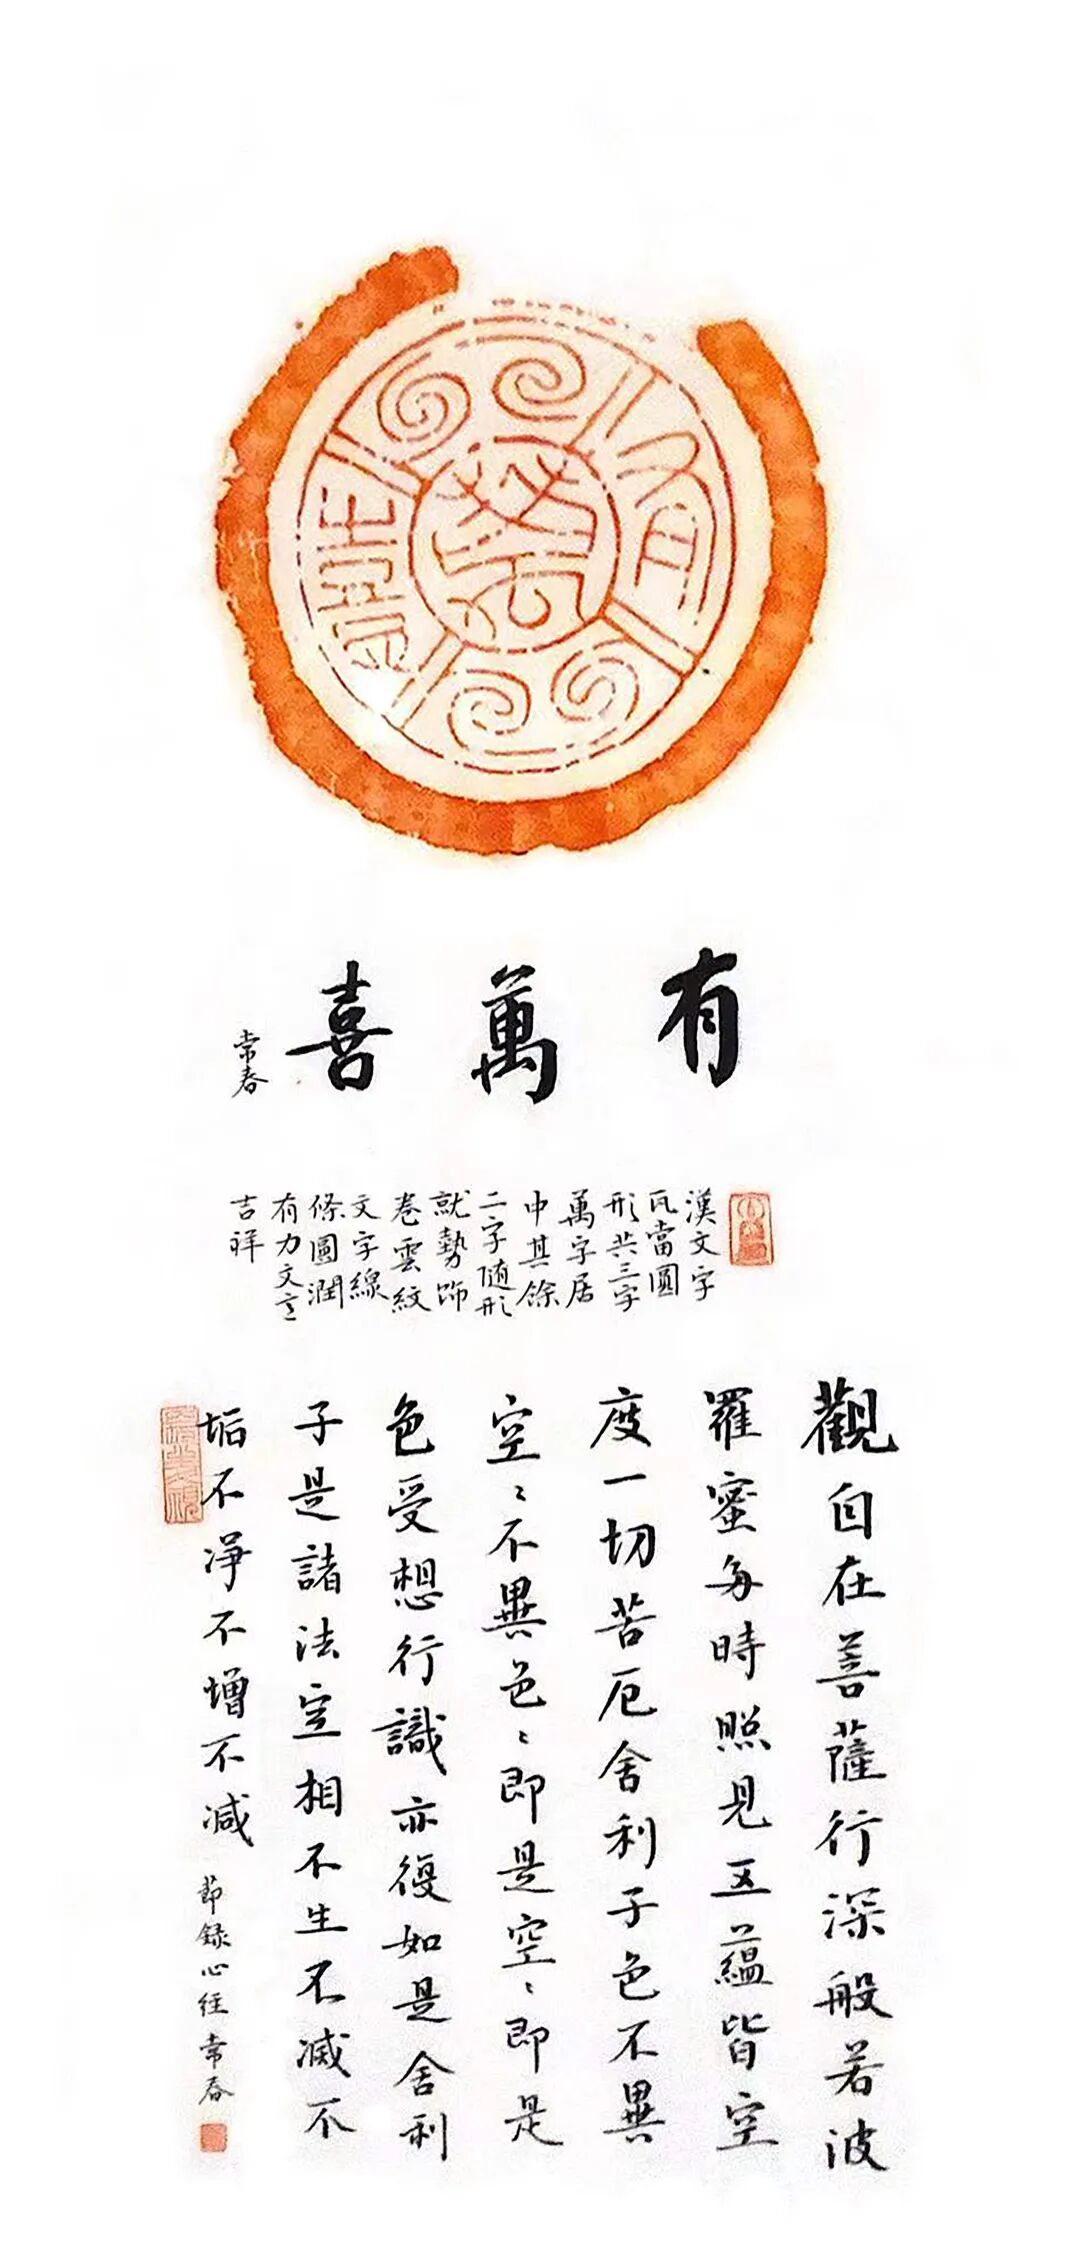 有萬憙
有萬喜
常春
漢文字
瓦當圓
形共三字
萬字居
中其餘
二字隨形
就勢飾
卷雲紋
文字線
條圓潤
有力文意
吉祥
觀自在菩薩行深般若波
羅蜜多時照見五蘊皆空
度一切苦厄舍利子色不異
空〻不異色〻即是空〻即是
色受想行識亦復如是舍利
子是諸法空相不生不滅不
垢不淨不增不減
節錄心經常春